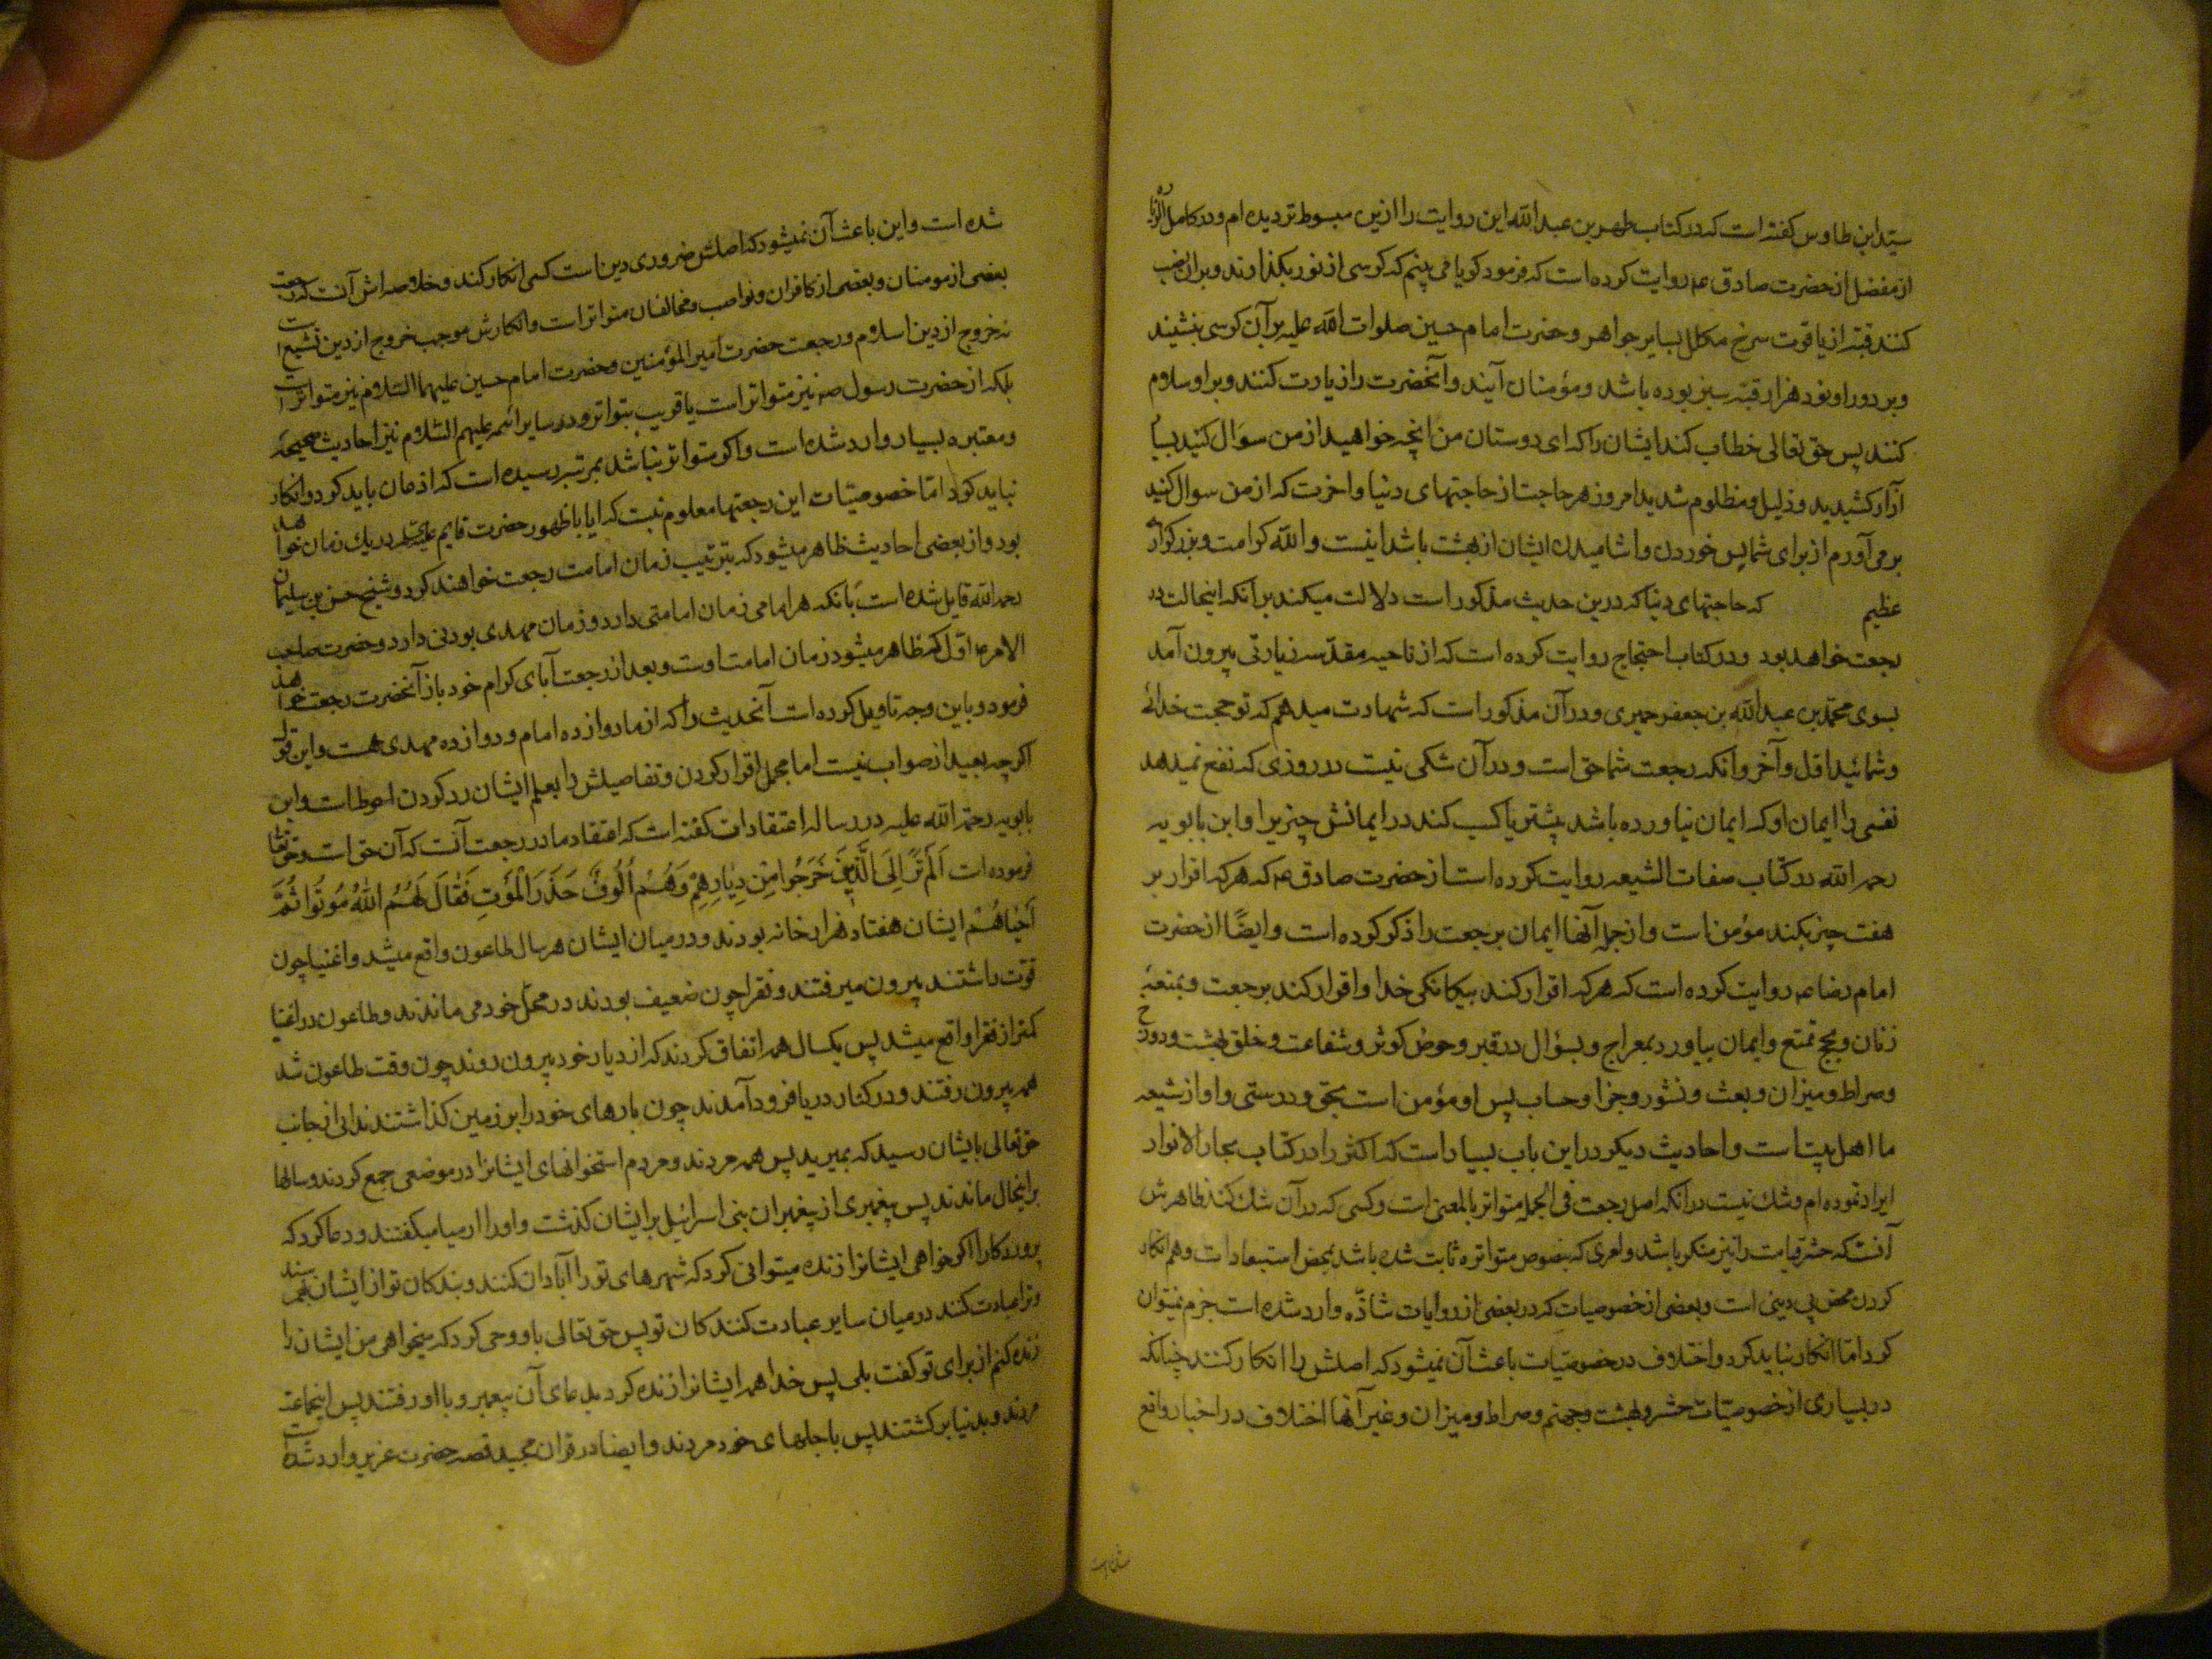 سید ابن طاوس کفته است که در کتاب طهر بن عبدالله این روایت را ازین مبسوط تر دیده‌ام و در کامل الزیا
از مفضل از حضرت صادق ع روایت کرده است که فرمود کویا می‌بینم که کرسی از نور بکذارند و بر آن نصب
کنند قبّه از یاقوت سرخ مکلل بسایر جواهر و حضرت امام حسین صلوات الله علیه بر آن کرسی بنشیند
و بر دور او نود هزار قبّه سبز بوده باشد و مؤمنان آیند و آنحضرت را زیارت کنند و بر او سلام
کنند پس حق تعالی خطاب کند ایشان را که ای دوستان من آنچه خواهید از من سوال کنید بسیا
آزار کشیدید و ذلیل و مظلوم شدید امروز هر حاجت از حاجتهای دنیا و اخرت که از من سوال کنید
بر می‌آورم از برای شما پس خوردن و اشامیدن ایشان از بهشت باشد اینست و الله کرامت و بزرکوار
عظیم که حاجتهای دنیا که درین حدیث مذکور است دلالت میکند بر آنکه اینحالت در
رجعت خواهد بود و در کتاب احتجاج روایت کرده است که از ناحیه مقدّسه زیارتی بیرون آمد
بسوی محمّد بن عبدالله بن جعفر حمیری و در آن مذکور است که شهادت میدهم که تو حجت خدائے
و شمائید اوّل و آخر و آنکه رجعت شما حق است و در آن شکی نیست در روزی که نفع نمیدهد
نفسی را ایمان او که ایمان نیاورده باشد پیشتر یا کسب کند در ایمانش چیزیرا و ابن بابویه
رحمه الله در کتاب صفات الشیعه روایت کرده است از حضرت صادق ع که هر که اقرار بر
هفت چیز بکند مؤمن است و از جمله آنها ایمان برجعت را ذکر کرده است و ایضًا از حضرت
امام رضا ع روایت کرده است که هر که اقرار کند بیکانکی خدا و اقرار کند برجعت و بمتعهٔ
زنان و بحج تمتع و ایمان بیاورد بمعراج و بسؤال در قبر و حوض کوثر و شفاعت و خلق بهشت و دوزخ
و صراط و میزان و بعث و نشور و جزا و حساب پس او مؤمن است بحق و درستی و او از شیعه
ما اهل بیت است و احادیث دیکر در این باب بسیار است که اکثر را در کتاب بحار الانوار
ایراد نموده‌ام و شک نیست در انکه اصل رجعت فی الجمله متواتر بالمعنی است و کسی که در آن شک کند ظاهرش
آنست که حشر قیامت را نیز منکر باشد و امری که بنصوص متواتره ثابت شده باشد بمحض استبعادات وهم انکار
کردن محض بی دینی است و بعضی از خصوصیات که در بعضی از روایات شاذّه وارد شده است جزم نمیتوان
کرد امّا انکار نباید کرد و اختلاف در خصوصیّات باعث آن نمیشود که اصلش را انکار کنند چنانکه
در بسیاری از خصوصیّات حشر و بهشت و جهنم و صراط و میزان و غیر آنها اختلاف در اخبار واقع
شده است
شده است و این باعث آن نمیشود که اصلش ضروری دین است کسی انکار کند و خلاصه‌اش آنست که رجعت
بعضی از مومنان و بعضی از کافران و نواصب و مخالفان متواتر است و انکارش موجب خروج از دین تشیع است
نه خروج از دین اسلام و رجعت حضرت امیر المؤمنین و حضرت امام حسین علیهما السّلام نیز متواتر است
بلکه از حضرت رسول ص نیز متواتر است یا قریب بتواتر و در سایر ائمه علیهم السّلام نیز احادیث صحیحه
و معتبره بسیار وارد شده است و اکر متواتر نباشد بمرتبه رسیده است که اذعان باید کرد و انکار
نباید کرد امّا خصوصیّات این رجعتها معلوم نیست که ایا با ظهور حضرت قایم علیه السلم در یک زمان خواهد
بود و از بعضی احادیث ظاهر میشود که بترتیب زمان امامت رجعت خواهند کرد و شیخ حسن بن سلیمان
رحمه الله قایل شده است بآنکه هر امامی زمان امامتی دارد و زمان مهدی بودنی دارد و حضرت صاحب
الامر ع اوّل که ظاهر میشود زمان امامت اوست و بعد از رجعت آبای کرام خود باز آنحضرت رجعت خواهد
فرمود و باین وجه تاویل کرده است آنحدیث را که از ما دوازده امام و دوازده مهدی هست و این قول
اکر چه بعید از صواب نیست اما مجمل اقرار کردن و تفاصیلش را بعلم ایشان رد کردن احوط است و ابن
بابویه رحمة الله علیه در رساله اعتقادات کفته است که اعتقاد ما در رجعت آنست که آن حق است و حق تعا
فرموده است اَلَمْ تَرَ اِلَی الَّذِینَ خَرَجُوا مِنْ دِیَارِهِمْ وَهُمْ اُلُوفٌ حَذَرَ الْمَوْتِ فَقَالَ لَهُمُ اللهُ مُوتُوا ثُمَّ
اَحْیَاهُمْ ایشان هفتاد هزار خانه بودند و در میان ایشان هر سال طاعون واقع میشد و اغنیا چون
قوّت داشتند بیرون میرفتند و فقرا چون ضعیف بودند در محلّ خود می‌ماندند و طاعون در اغنیا
کمتر از فقرا واقع میشد پس یکسال همه اتفاق کردند که از دیار خود بیرون روند چون وقت طاعون شد
همه بیرون رفتند و در کنار دریا فرود آمدند چون بارهای خود را بر زمین کذاشتند ندائی از جانب
حق تعالی بایشان رسید که بمیرید پس همه مردند و مردم استخوانهای ایشانرا در موضعی جمع کردند و سالها
بر اینحال ماندند پس پیغمبری از پیغمبران بنی اسرائیل بر ایشان کذشت و او را ارمیا میکفتند و دعا کرد که
پروردکارا اکر خواهی ایشانرا زنده میتوانی کرد که شهرهای تو را آبادان کنند و بندکان تو از ایشان بهم رسند
و ترا عبادت کنند در میان سایر عبادت کنندکان تو پس حق تعالی باو وحی کرد که میخواهی من ایشان را
زنده کنم از برای تو کفت بلی پس خدا همه ایشانرا زنده کرد بدعای آن پیغمبر و با او رفتند پس اینجماعت
مردند و بدنیا برکشتند پس باجلهای خود مردند و ایضا در قران مجید قصه حضرت عزیر وارد شده است